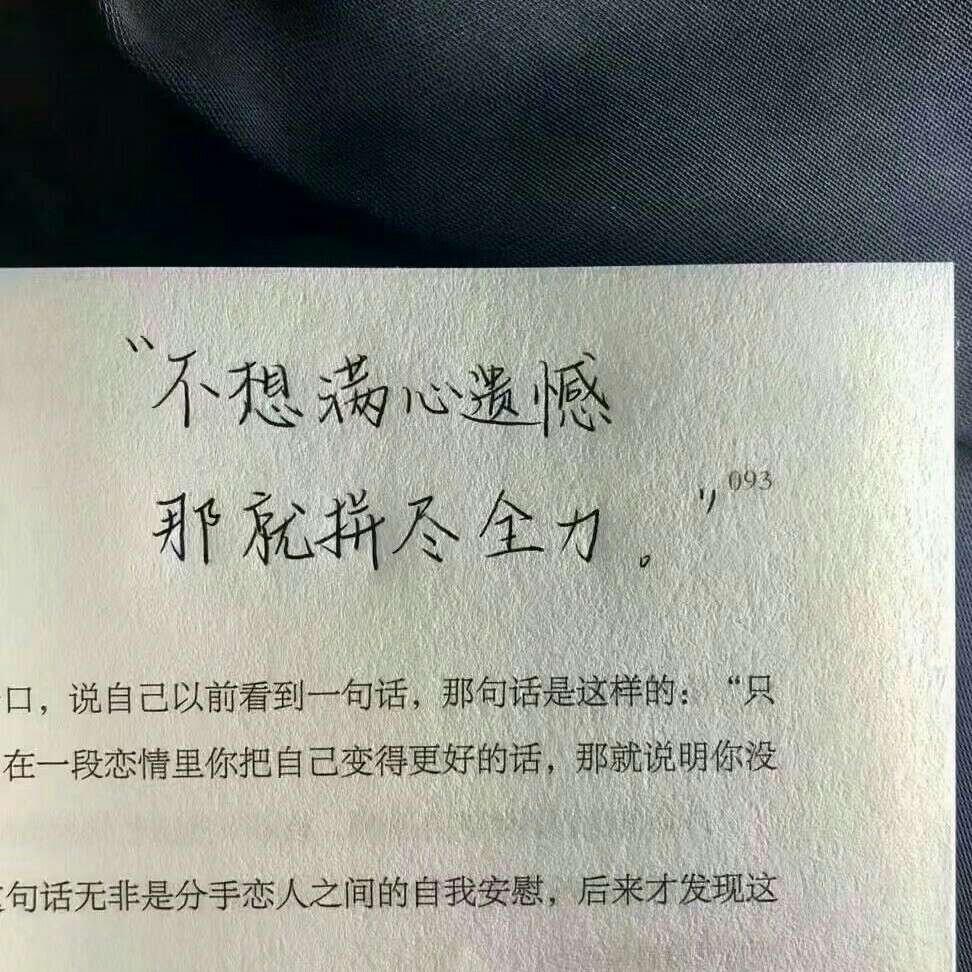 “不想满心遗憾
那就拼尽全力。”
093
口，说自己以前看到一句话，那句话是这样的：“只
在一段恋情里你把自己变得更好的话，那就说明你没
句话无非是分手恋人之间的自我安慰，后来才发现这